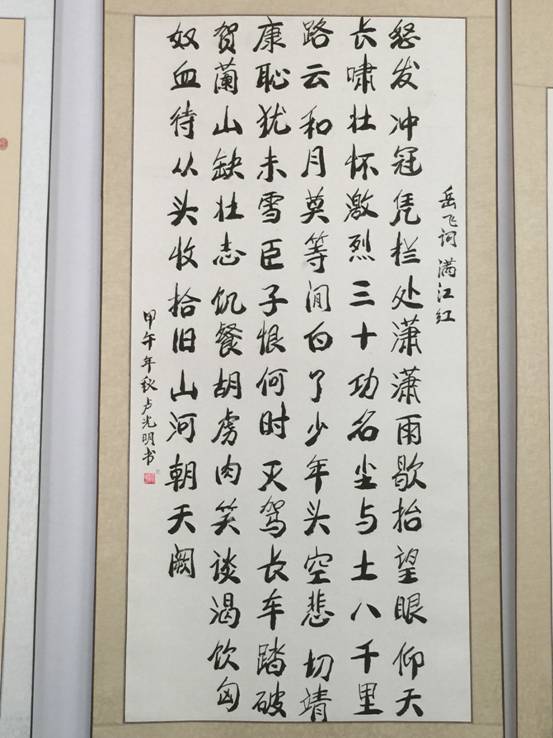 岳飞词满江红
怒发冲冠凭栏处潇潇雨歇抬望眼仰天
长啸壮怀激烈三十功名尘与土八千里
路云和月莫等闲白了少年头空悲切靖
康耻犹未雪臣子恨何时灭驾长车踏破
贺蘭山缺壮志饥餐胡虏肉笑谈渴饮匈
奴血待从头收拾旧山河朝天阙
甲午年秋卢光明书